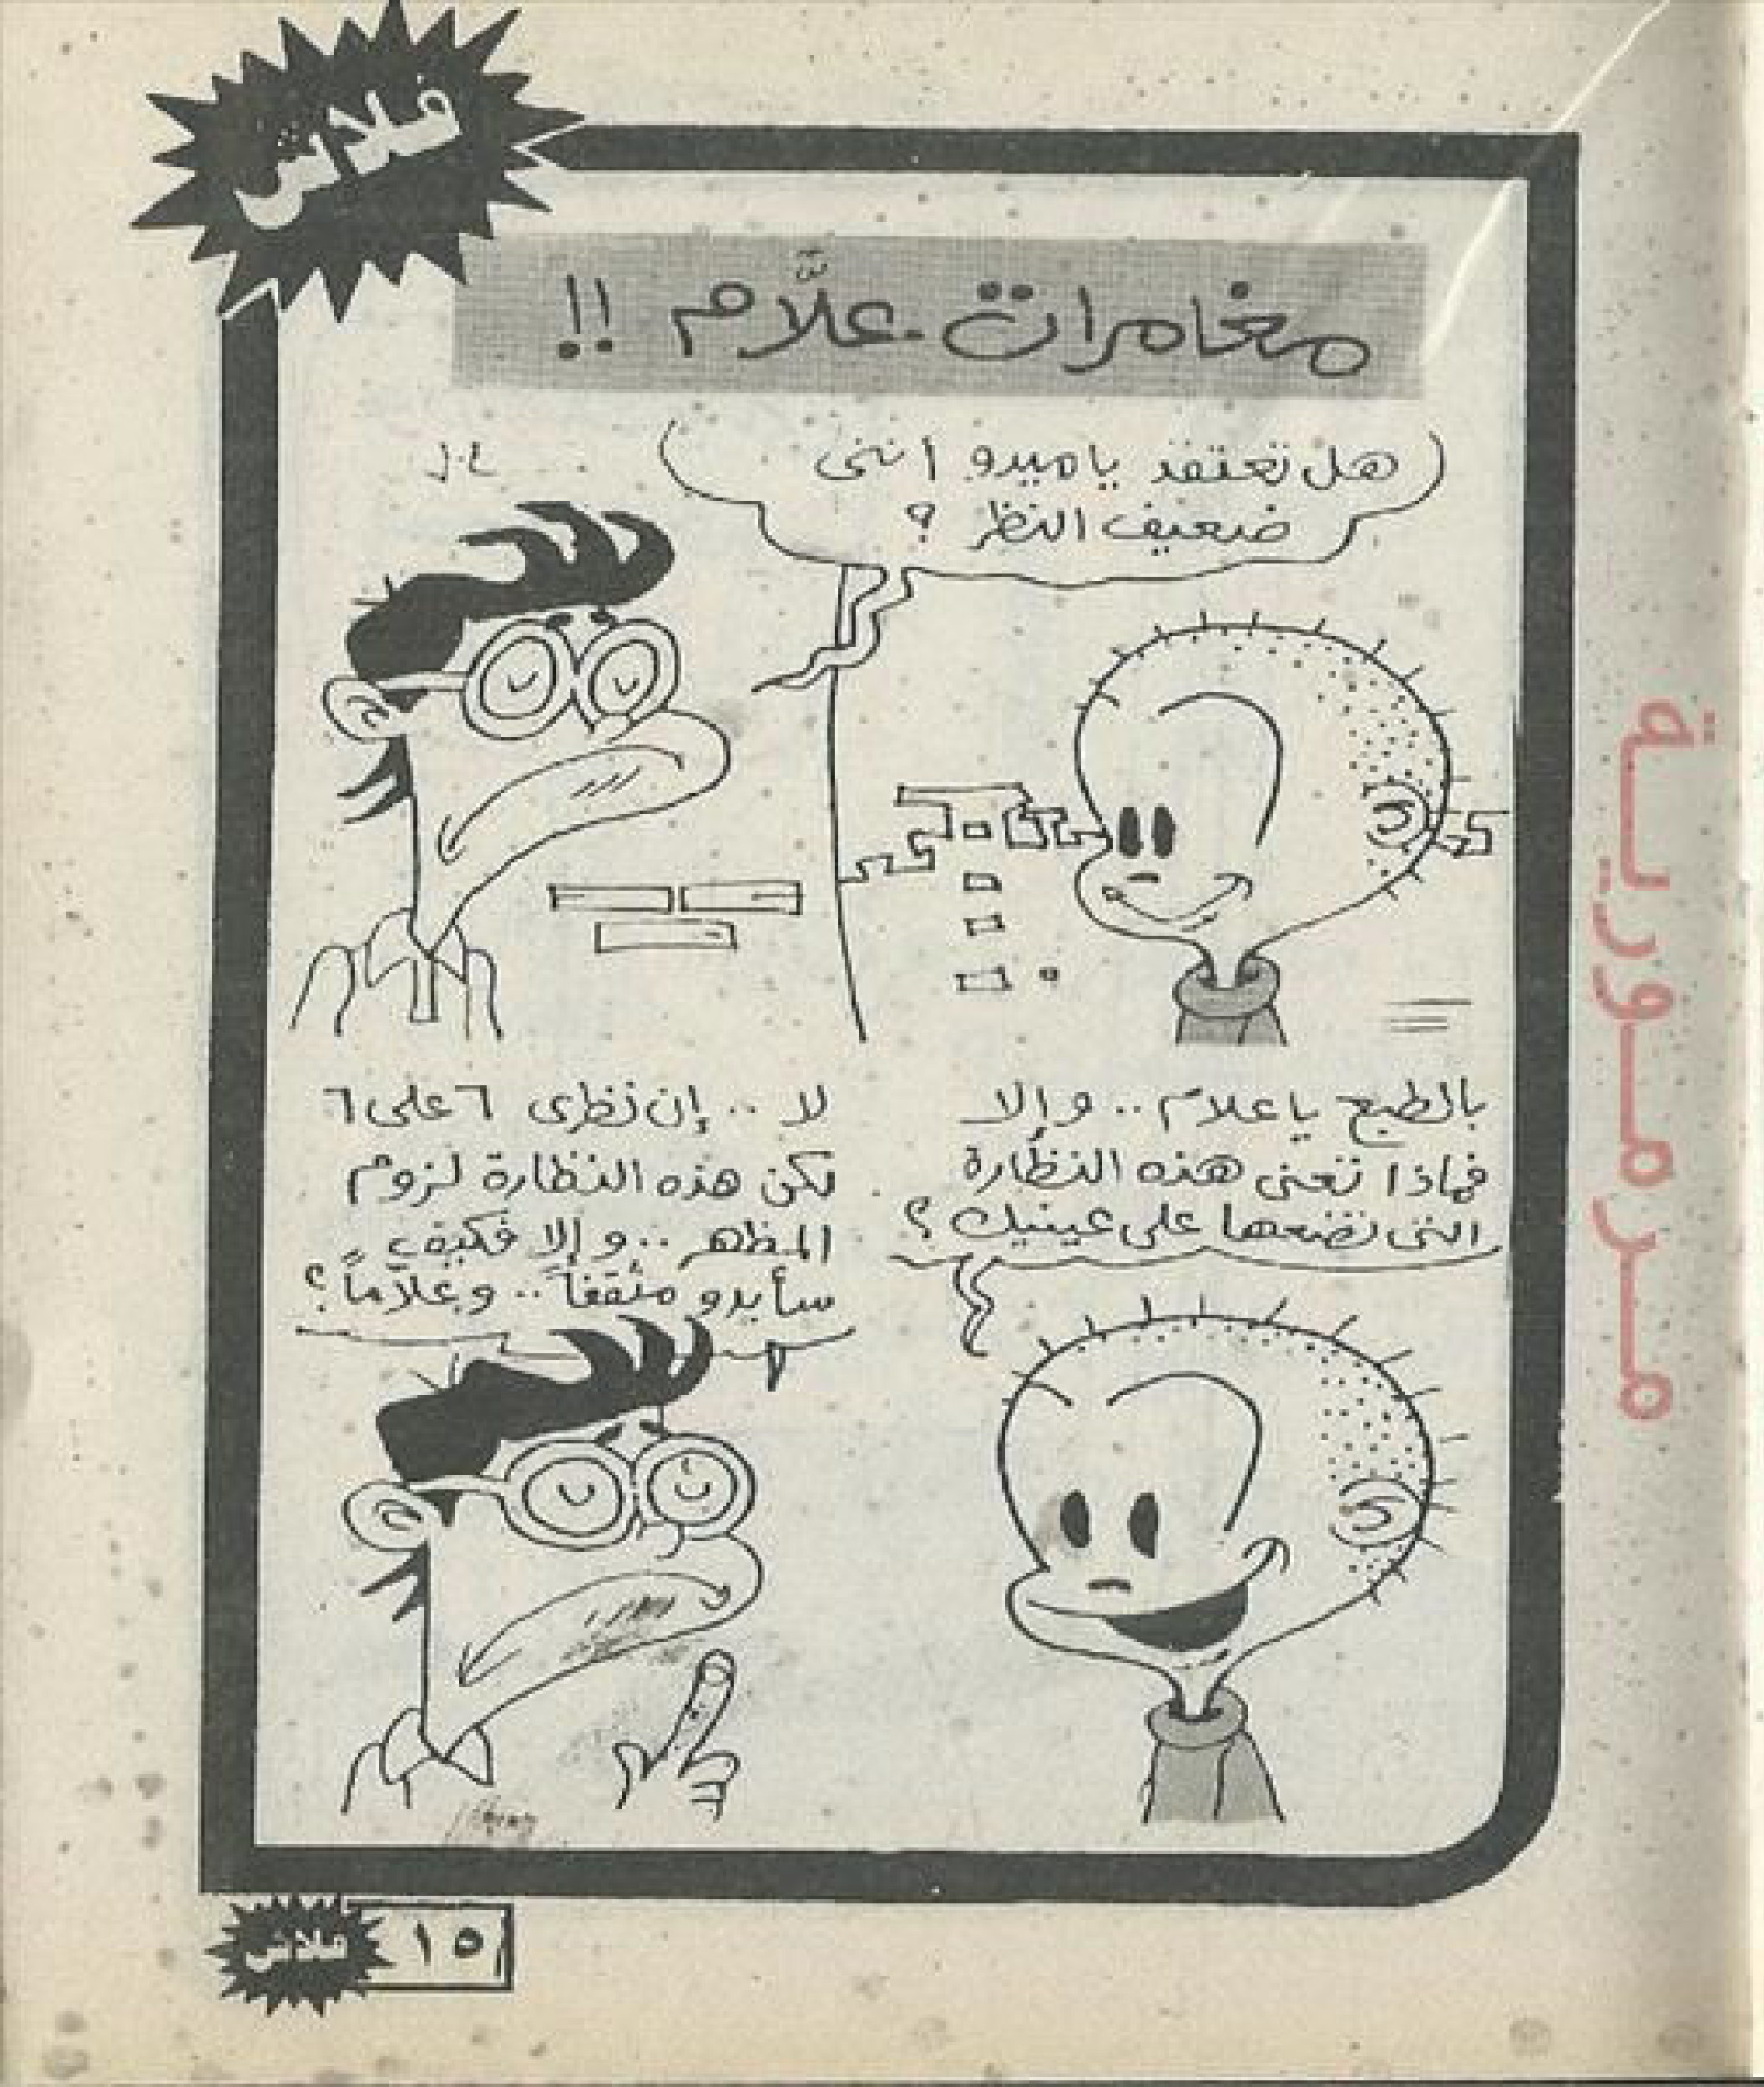 فلاش
مغامرات علَّام !!
هل تعتقد يا ميدو اننى
ضعيف النظر ؟
بالطبع يا علام .. وإلا
فماذا تعنى هذه النظارة
التى تضعها على عينيك ؟
لا .. إن نظرى ٦ على ٦
لكن هذه النظارة لزوم
المظهر .. وإلا فكيف
سأبدو مثقفاً .. وعلاّماً ؟
مرمورية
١٥
فلاش